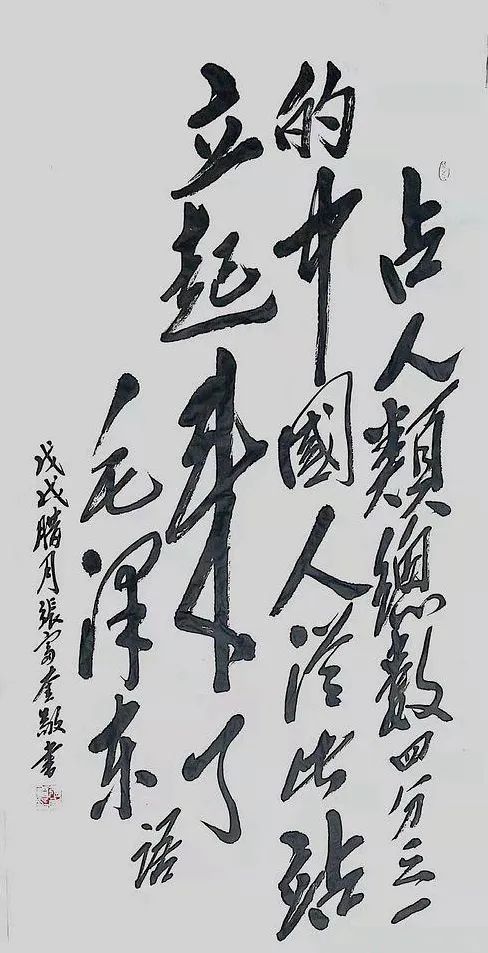 占人類總數四分之一
的中國人從此站
立起来了
毛泽东语
戊戌腊月張富奎敬書